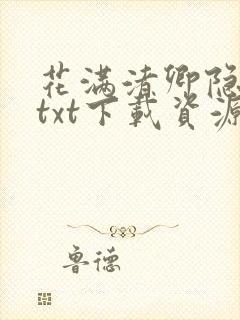 花满渚卿隐
txt下载资源
鲁德